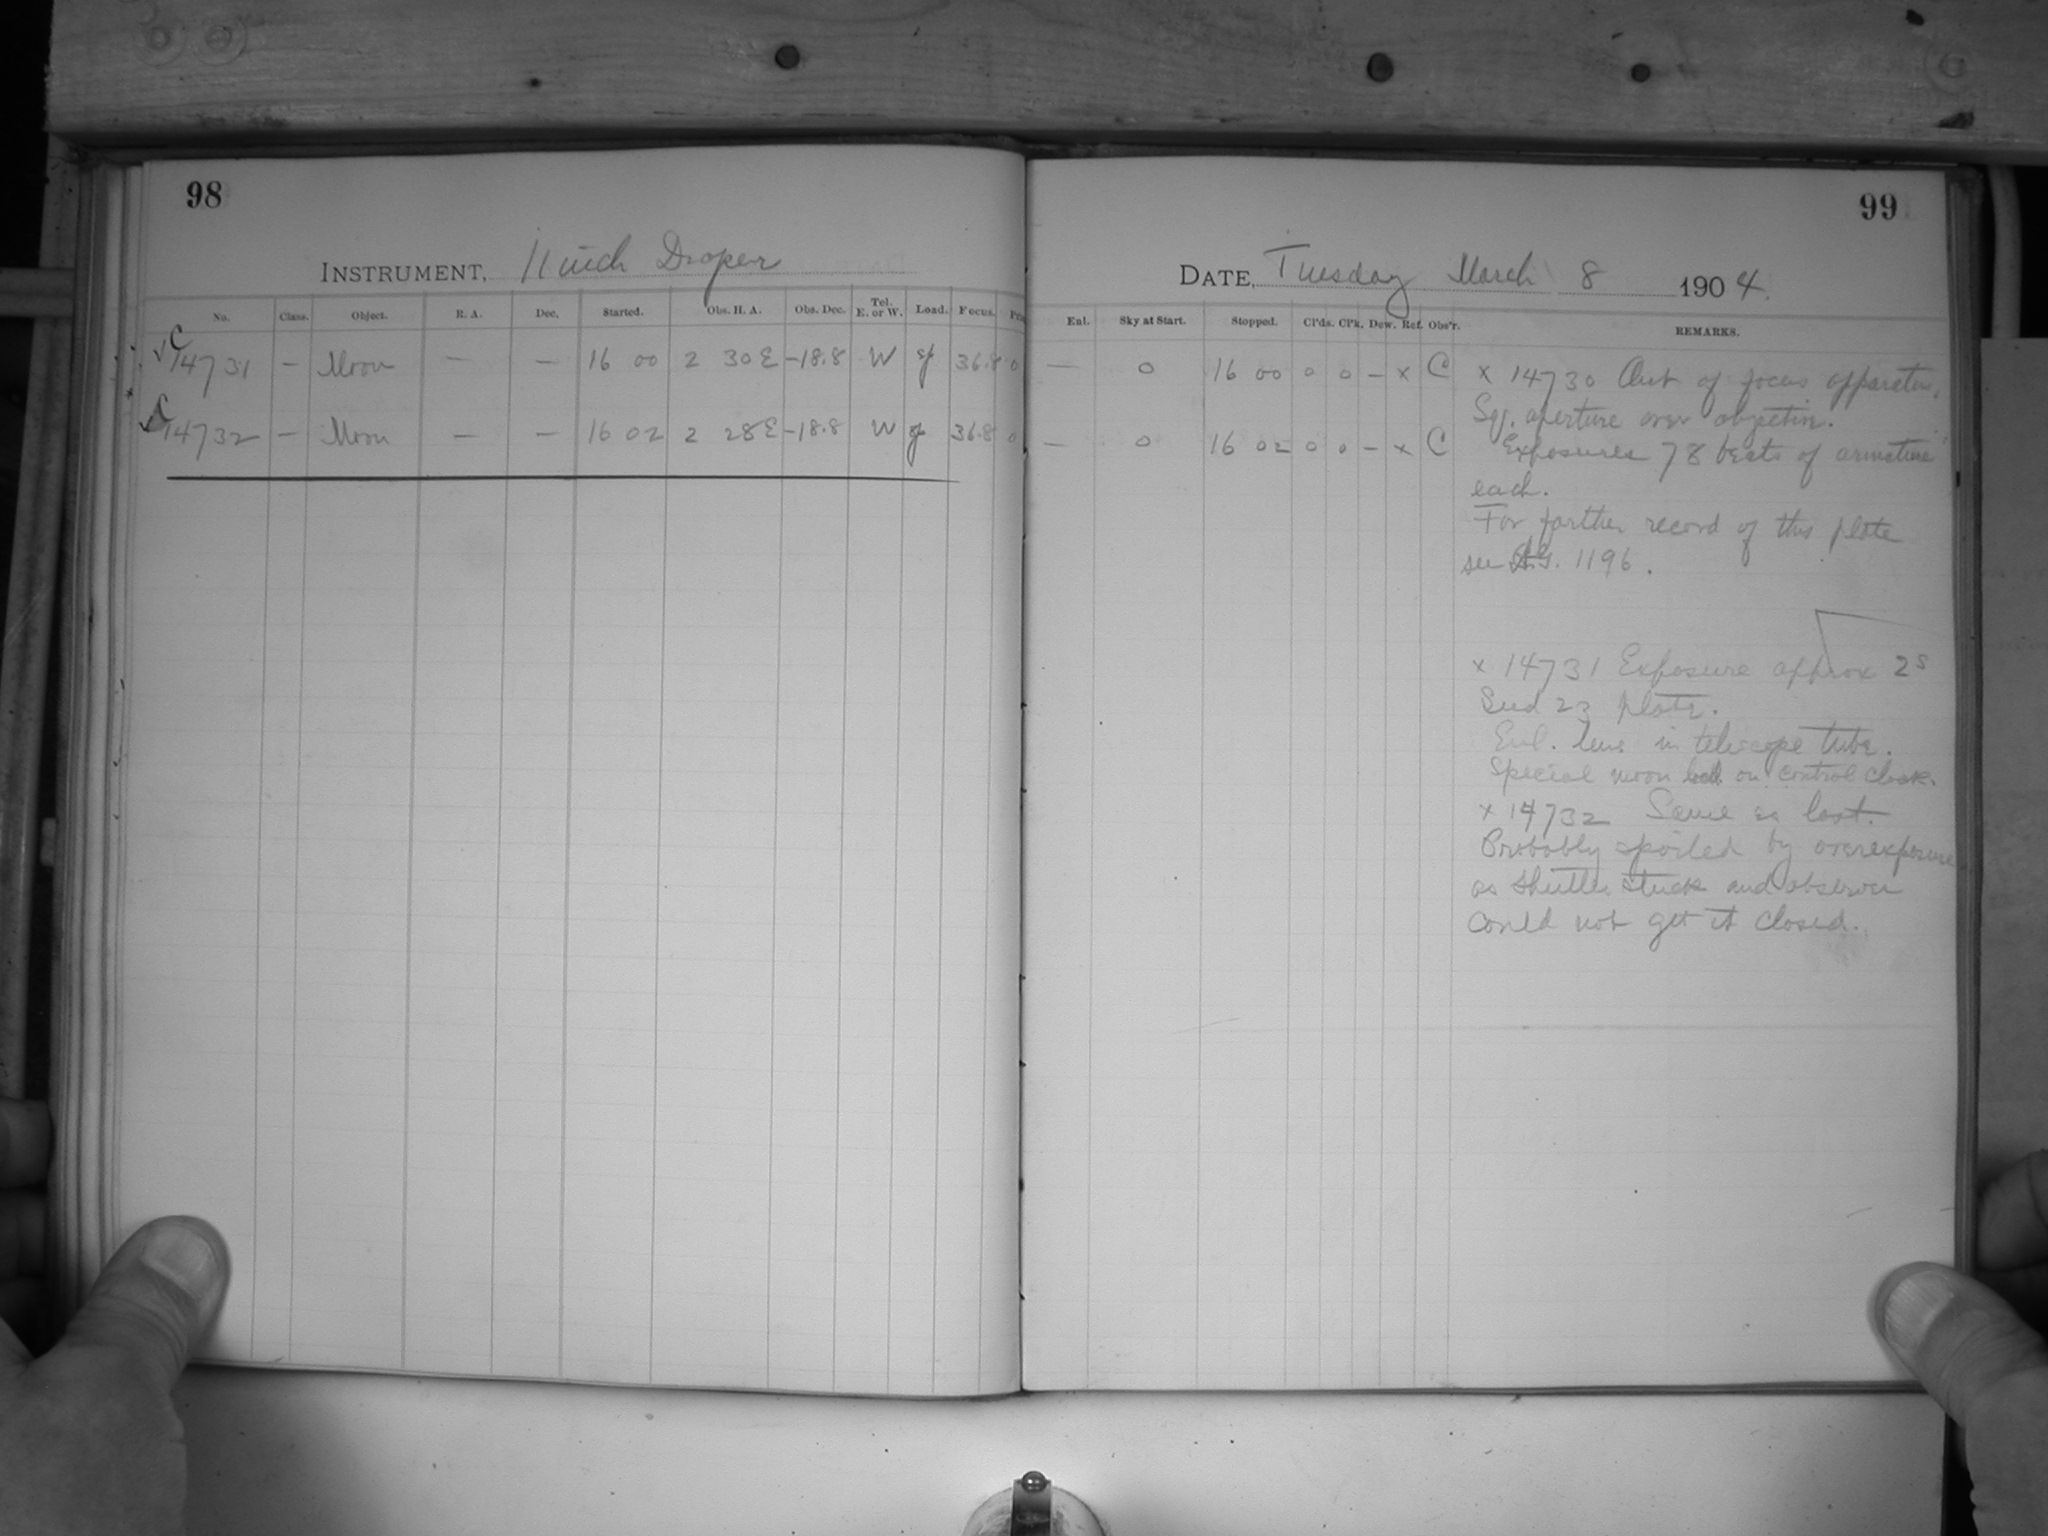 98
INSTRUMENT, 11 inch Draper
No. Class. Object. R. A. Dec. Started. Obs. H. A. Obs. Dec. Tel. E. or W. Load. Focus.
C 14731 — Moon — — 16 00 2 30 E -18.8 W 36.8 0
C 14732 — Moon — — 16 02 2 28 E -18.8 W 36.8 0
99
DATE, Tuesday March 8 1904
Enl. Sky at Start. Stopped. Cl'ds. Cl'k. Dew. Ref. Obs'r. REMARKS.
— 0 16 00 0 0 — x C
— 0 16 02 0 0 — x C
x 14730 Out of focus apparatus.
Sq. aperture over objective.
Exposures 78 beats of armature
each.
For farther record of this plate
see 1196.
x 14731 Exposure approx 2s
Seed 23 plate.
Enl. lens in telescope tube.
Special moon on control clock.
x 14732 Same as last.
Probably spoiled by overexposure
as shutter stuck and observer
could not get it closed.